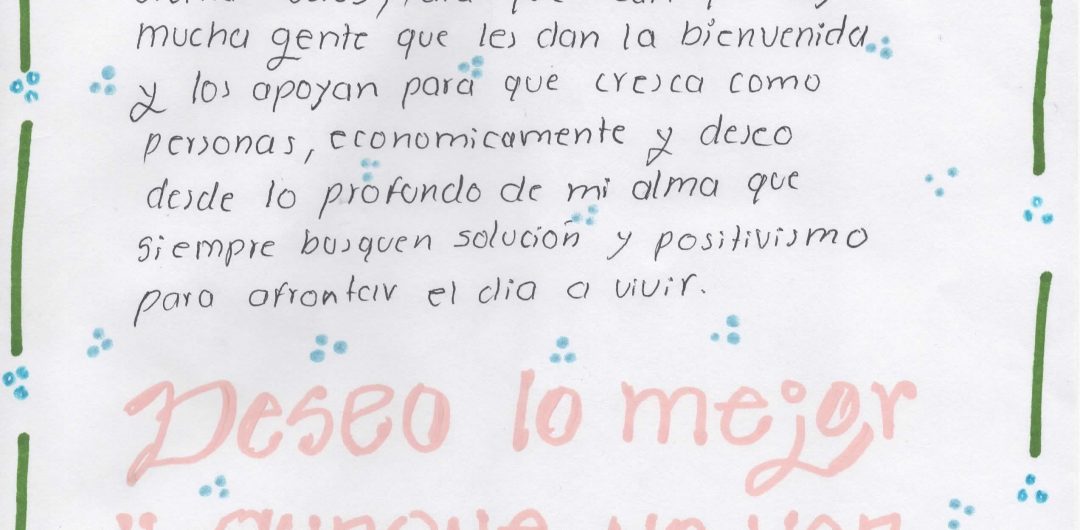 mucha gente que les dan la bienvenida
y los apoyan para que cresca como
personas, economicamente y deseo
desde lo profundo de mi alma que
siempre busquen solución y positivismo
para afrontar el dia a vivir.
Deseo lo mejor